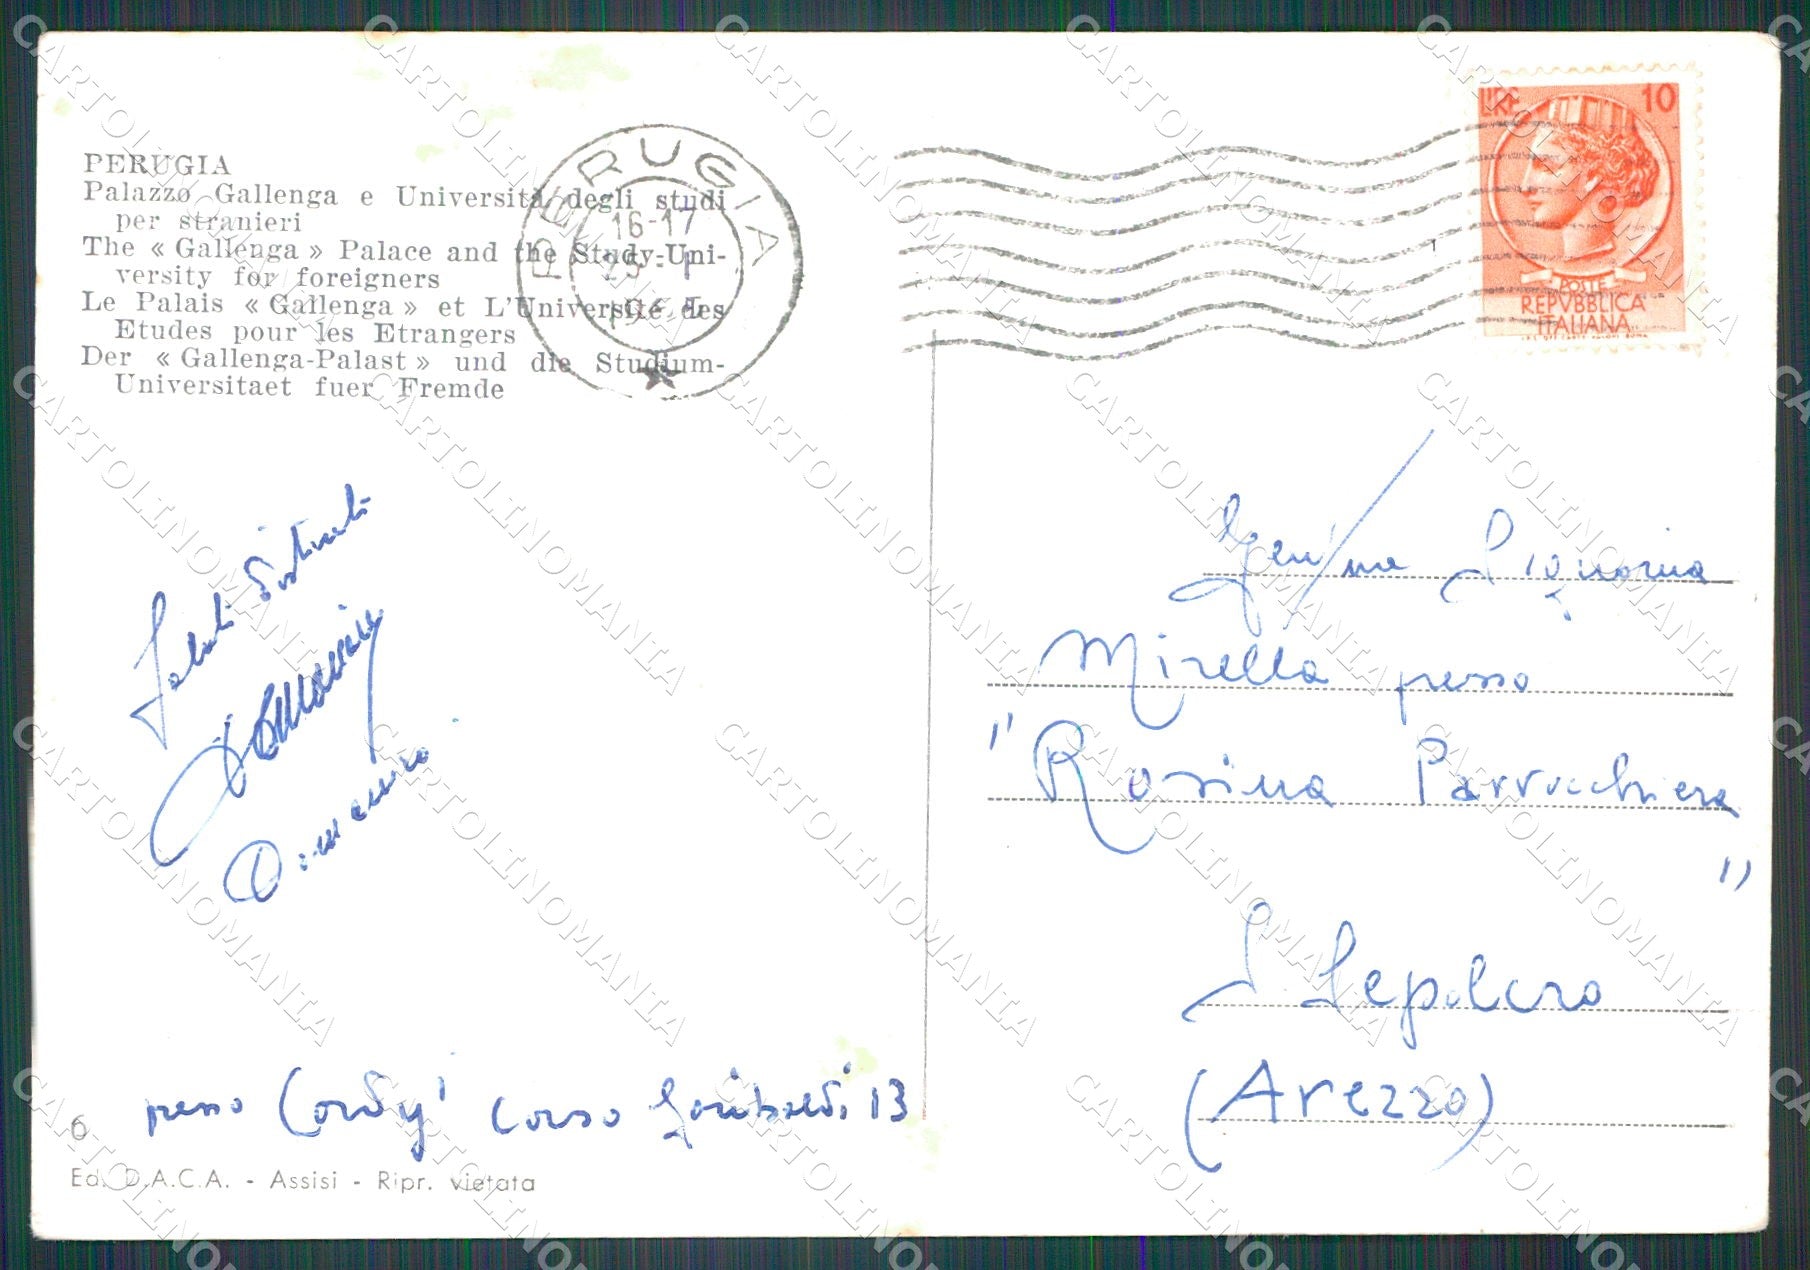 PERUGIA
Palazzo Gallenga e Università degli studi
per stranieri
The « Gallenga » Palace and the Study-Uni-
versity for foreigners
Le Palais « Gallenga » et L'Université des
Etudes pour les Etrangers
Der « Gallenga-Palast » und die Studium-
Universitaet fuer Fremde
PERUGIA
16-17
LIRE 10
POSTE
REPVBBLICA
ITALIANA
Saluti distinti
Domenico
presso Cordy' corso Garibaldi 13
6
Ed. D.A.C.A. - Assisi - Ripr. vietata
Gen/ma Signorina
Mirella presso
"Rosina Parrucchiera
"
S. Sepolcro
(Arezzo)
CARTOLINOMANIA